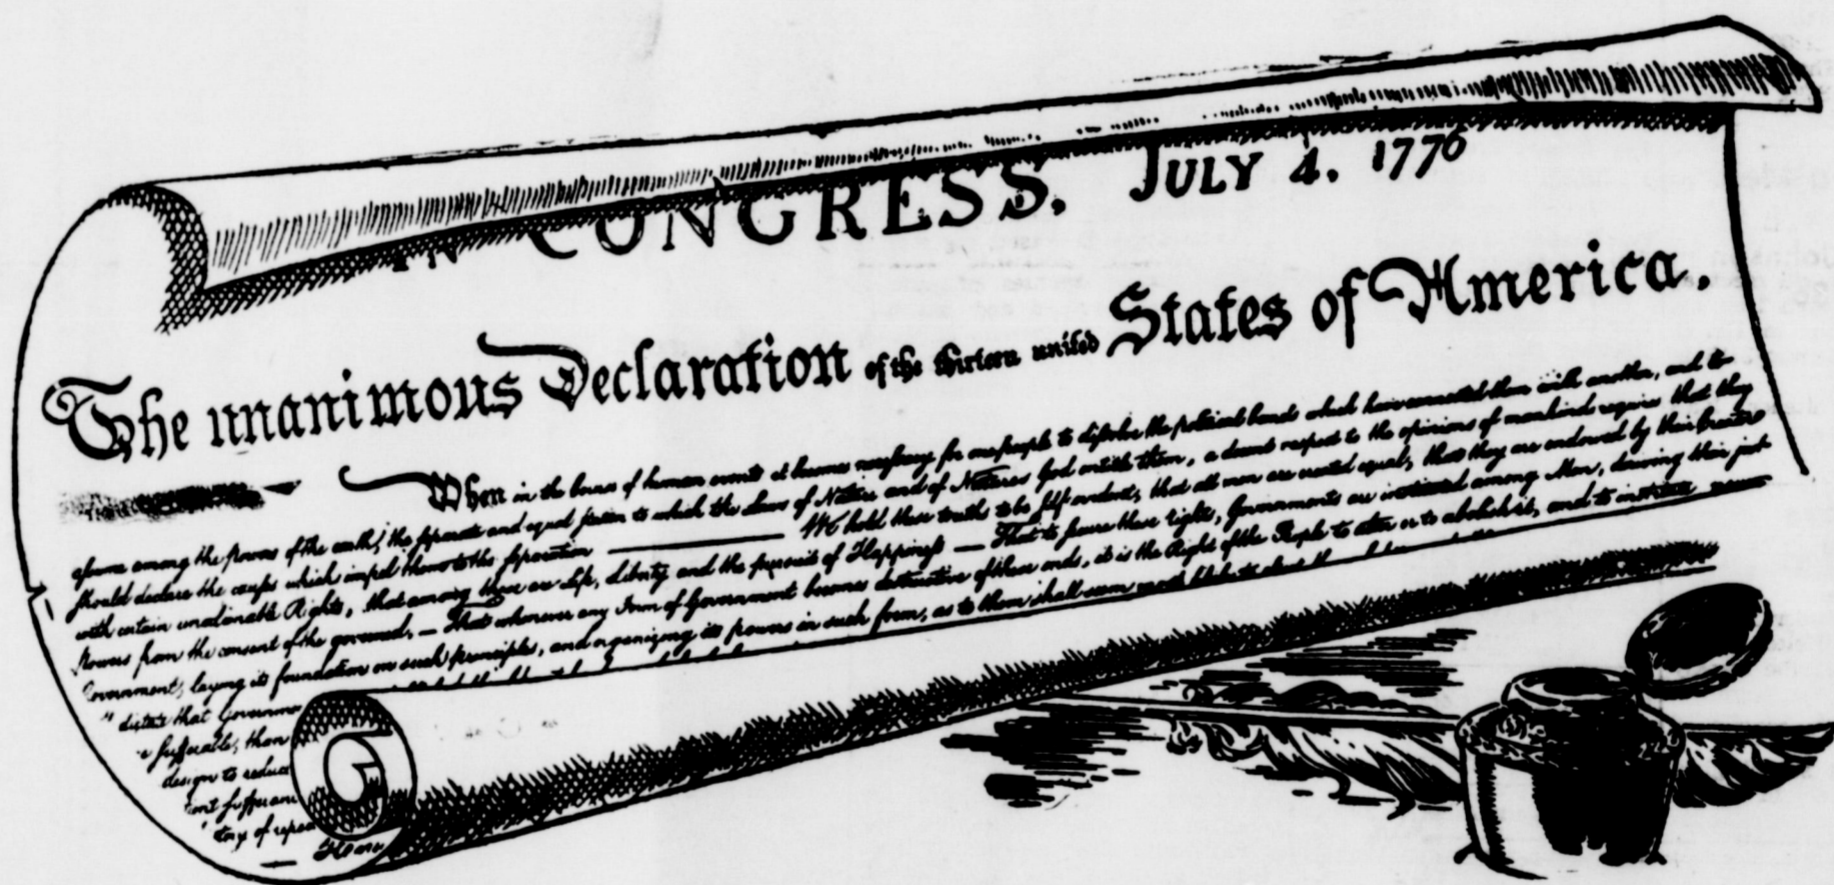 IN CONGRESS, JULY 4. 1776
The unanimous Declaration of the thirteen united States of America.
When in the Course of human events it becomes necessary for one people to dissolve the political bands which have connected them with another, and to
assume among the powers of the earth, the separate and equal station to which the Laws of Nature and of Nature's God entitle them, a decent respect to the opinions of mankind requires that they
should declare the causes which impel them to the separation ——— We hold these truths to be self evident, that all men are created equal, that they are endowed by their Creator
with certain unalienable Rights, that among these are Life, Liberty and the pursuit of Happiness — That to secure these rights, Governments are instituted among Men, deriving their just
powers from the consent of the governed, — That whenever any Form of Government becomes destructive of these ends, it is the Right of the People to alter or to abolish it, and to institute
Government, laying its foundation on such principles, and organizing its powers in such form, as to them shall seem most likely to
dictate that Governme
sufferable, than
design to reduce
ent sufferan
tory of repea